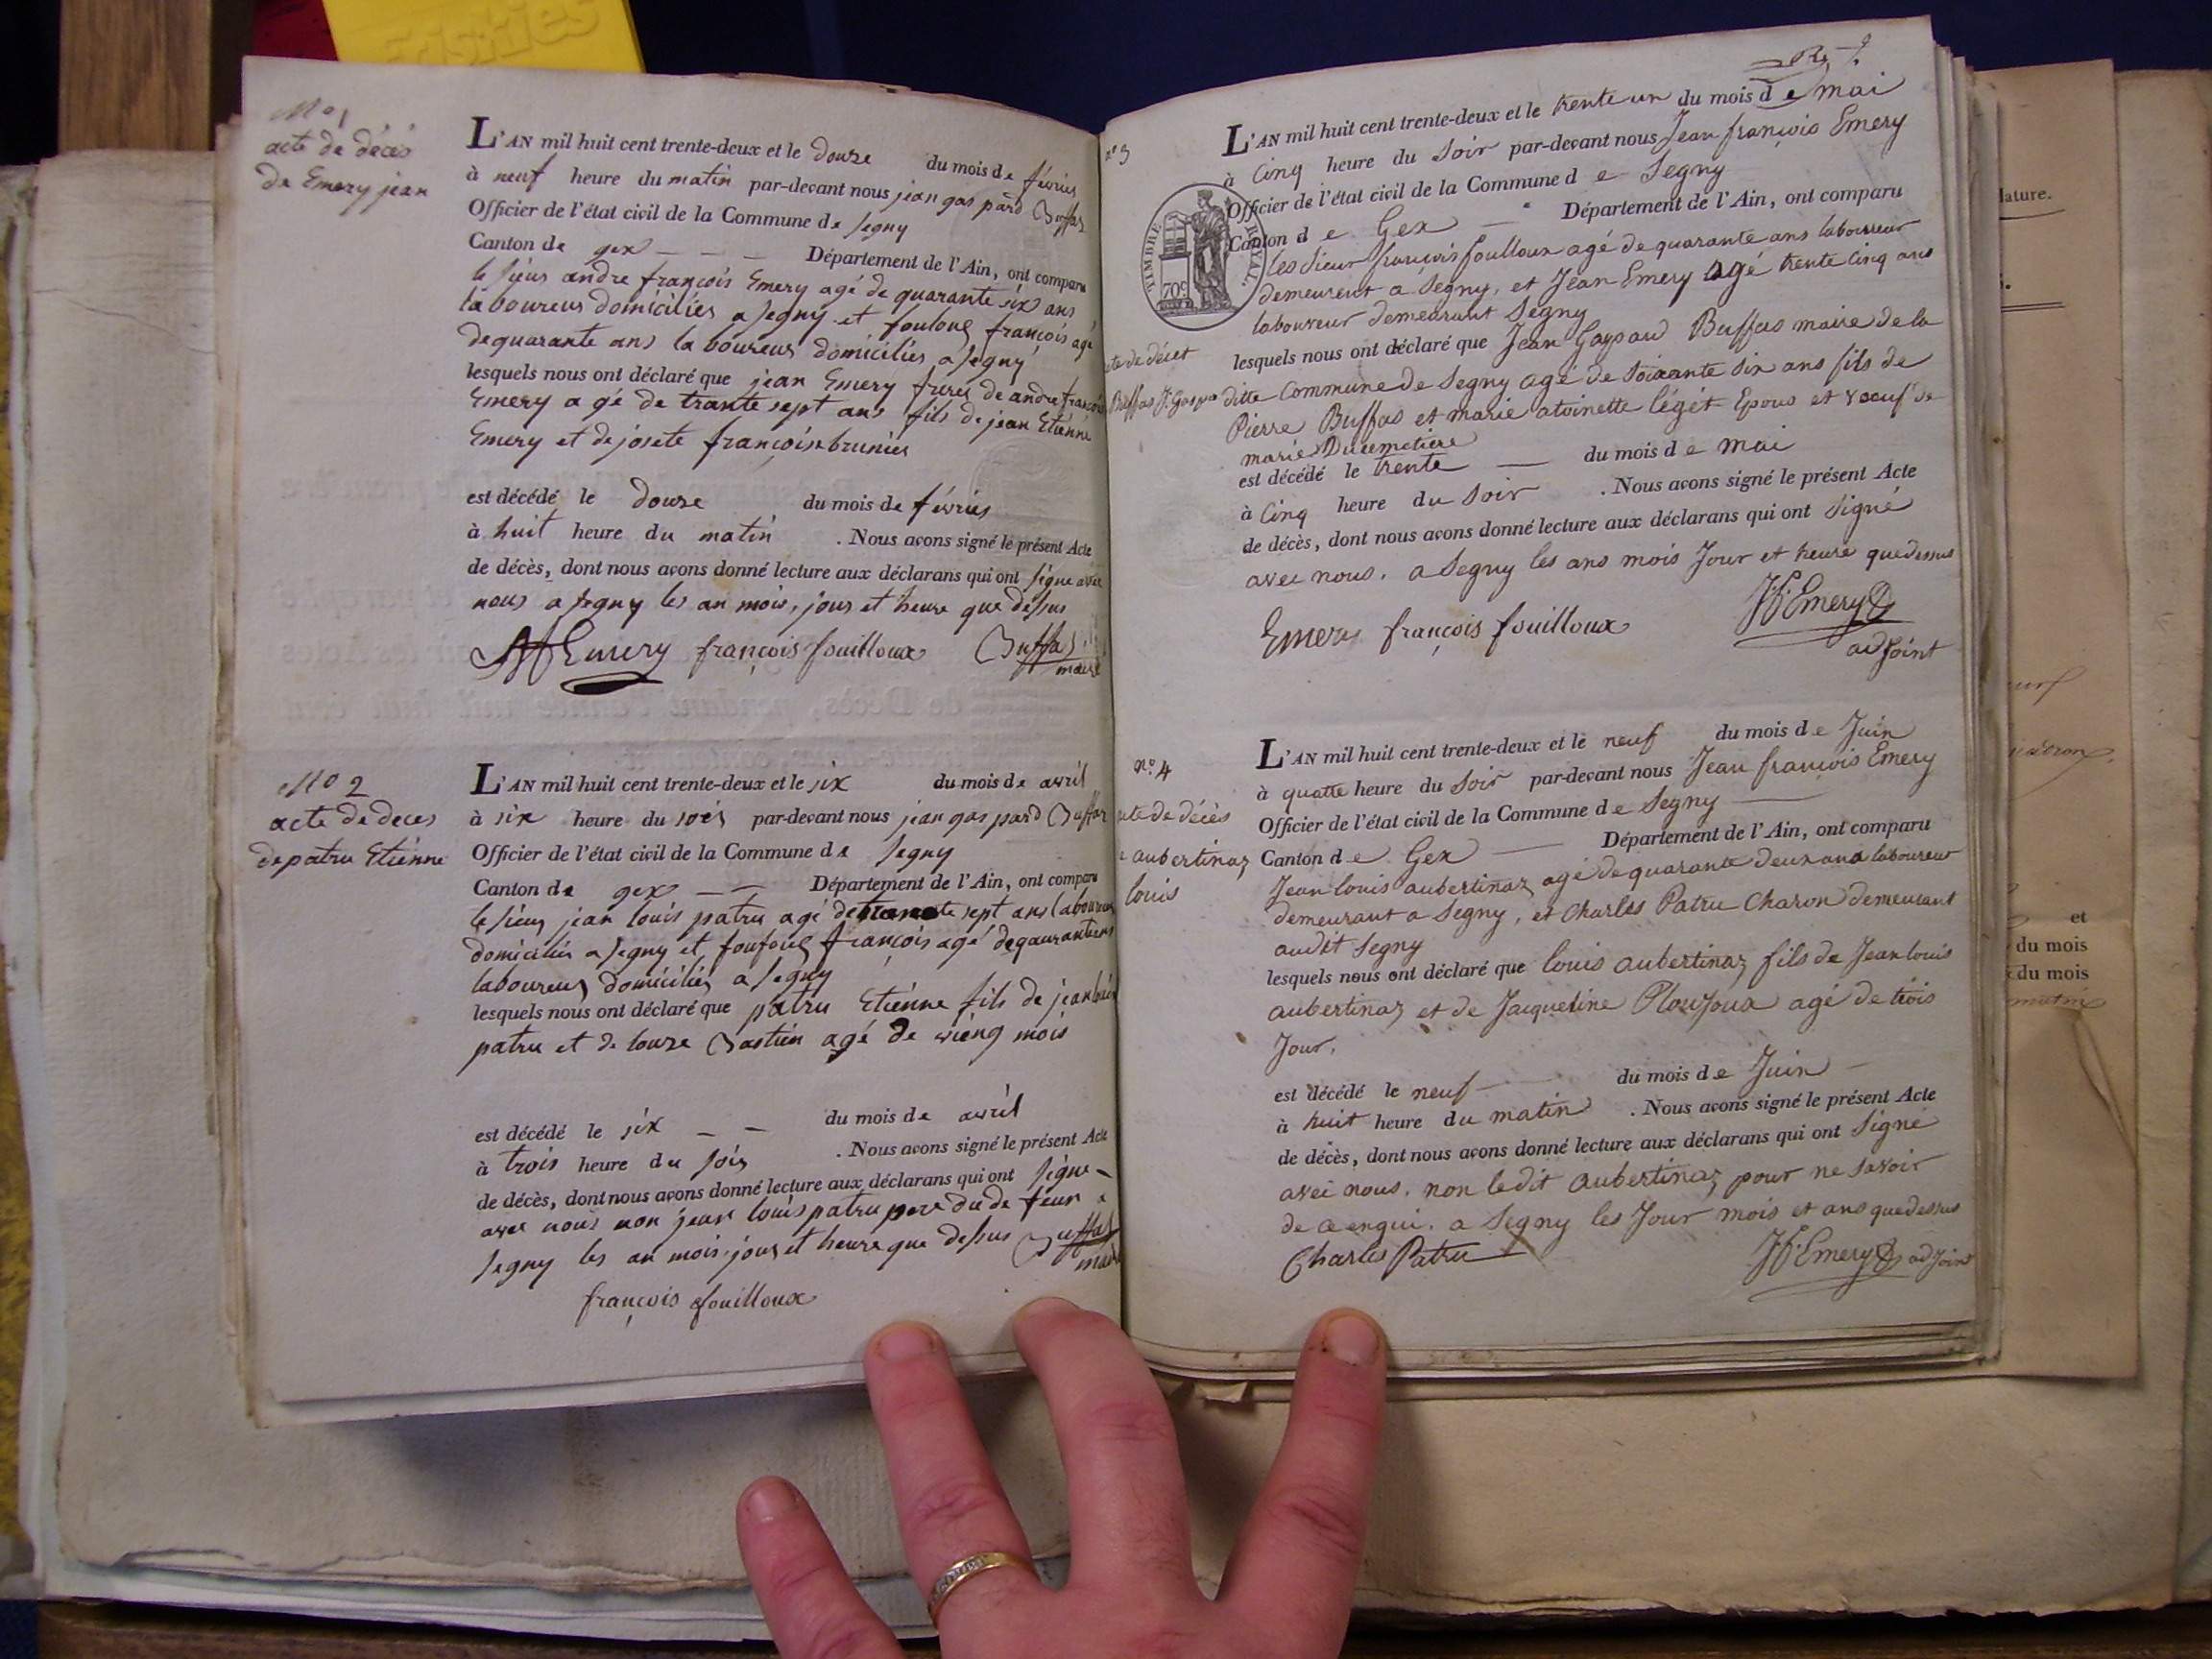 Nº 1
acte de décés
de Emery jean
L'AN mil huit cent trente-deux et le douze du mois de février
à neuf heure du matin par-devant nous jean gaspard Buffas
Officier de l'état civil de la Commune de Segny
Canton de gex — — — Département de l'Ain, ont comparu
le sieur andre françois Emery agé de quarante six ans
laboureur domiciliés a Segny et fouloux françois agé
de quarante ans laboureur domiciliés a Segny
lesquels nous ont déclaré que jean Emery freres de andre francois
Emery agé de trante sept ans fils de jean Etiénne
Emery et de josete françoise brunier
est décédé le douze du mois de févrièr
à huit heure du matin . Nous avons signé le présent Acte
de décès, dont nous avons donné lecture aux déclarans qui ont signe avec
nous a Segny les an mois, jour et heure que dessus
AF Emery françois fouilloux Buffas
maire
Nº 2
acte de deces
de patru Etiénne
L'AN mil huit cent trente-deux et le six du mois de avril
à six heure du soir par-devant nous jean gaspard Buffas
Officier de l'état civil de la Commune de Segny
Canton de gex — — Département de l'Ain, ont comparu
le sieur jean louis patru agé de trante sept ans laboureur
domiciliés a Segny et fouloux françois agé de quarante ans
laboureur domiciliés a Segny
lesquels nous ont déclaré que patru Etiénne fils de jean louis
patru et de louze Bastien agé de mois
est décédé le six — — du mois de avril
à trois heure du soir . Nous avons signé le présent Acte
de décès, dont nous avons donné lecture aux déclarans qui ont signe
avec nous non jean louis patru pere du de feun a
Segny les an mois, jour et heure que dessus Buffas
maire
françois fouilloux
nº 3
L'AN mil huit cent trente-deux et le trente un du mois de mai
à Cinq heure du Soir par-devant nous Jean françois Emery
Officier de l'état civil de la Commune de Segny
Canton de Gex — Département de l'Ain, ont comparu
TIMBRE ROYAL
70c
les Sieur françois foulloux agé de quarante ans laboureur
demeurent a Segny, et Jean Emery agé trente Cinq ans
laboureur demeurant Segny
cte de décet
lesquels nous ont déclaré que Jean Gaspard Buffas maire de la
Buffas J. Gaspar
ditte Commune de Segny agé de Soixante Six ans fils de
Pierre Buffas et marie atoinette légét Epoux et voeuf de
marie Ducemetiere
est décédé le trente — du mois de mai
à Cinq heure du Soir . Nous avons signé le présent Acte
de décès, dont nous avons donné lecture aux déclarans qui ont Signé
avec nous. a Segny les ans mois Jour et heure que dessus
Emery françois fouilloux JF Emery
adjoint
nº. 4
cte de décès
aubertinaz
louis
L'AN mil huit cent trente-deux et le neuf du mois de Juin
à quatte heure du Soir par-devant nous Jean françois Emery
Officier de l'état civil de la Commune de Segny —
Canton de Gex — Département de l'Ain, ont comparu
Jean louis aubertinaz agé de quarante deux ans laboureur
demeurant a Segny, et Charles Patru Charon demeurant
audit Segny
lesquels nous ont déclaré que louis aubertinaz fils de Jean louis
aubertinaz et de Jacqueline Ploujoux agé de trois
Jour.
est décédé le neuf — du mois de Juin —
à huit heure du matin . Nous avons signé le présent Acte
de décès, dont nous avons donné lecture aux déclarans qui ont Signé
avec nous. non ledit aubertinaz pour ne savoir
de ce enqui. a Segny les Jour mois et ans que dessus
Charles Patru JF Emery adjoint
lature.
et
du mois
du mois